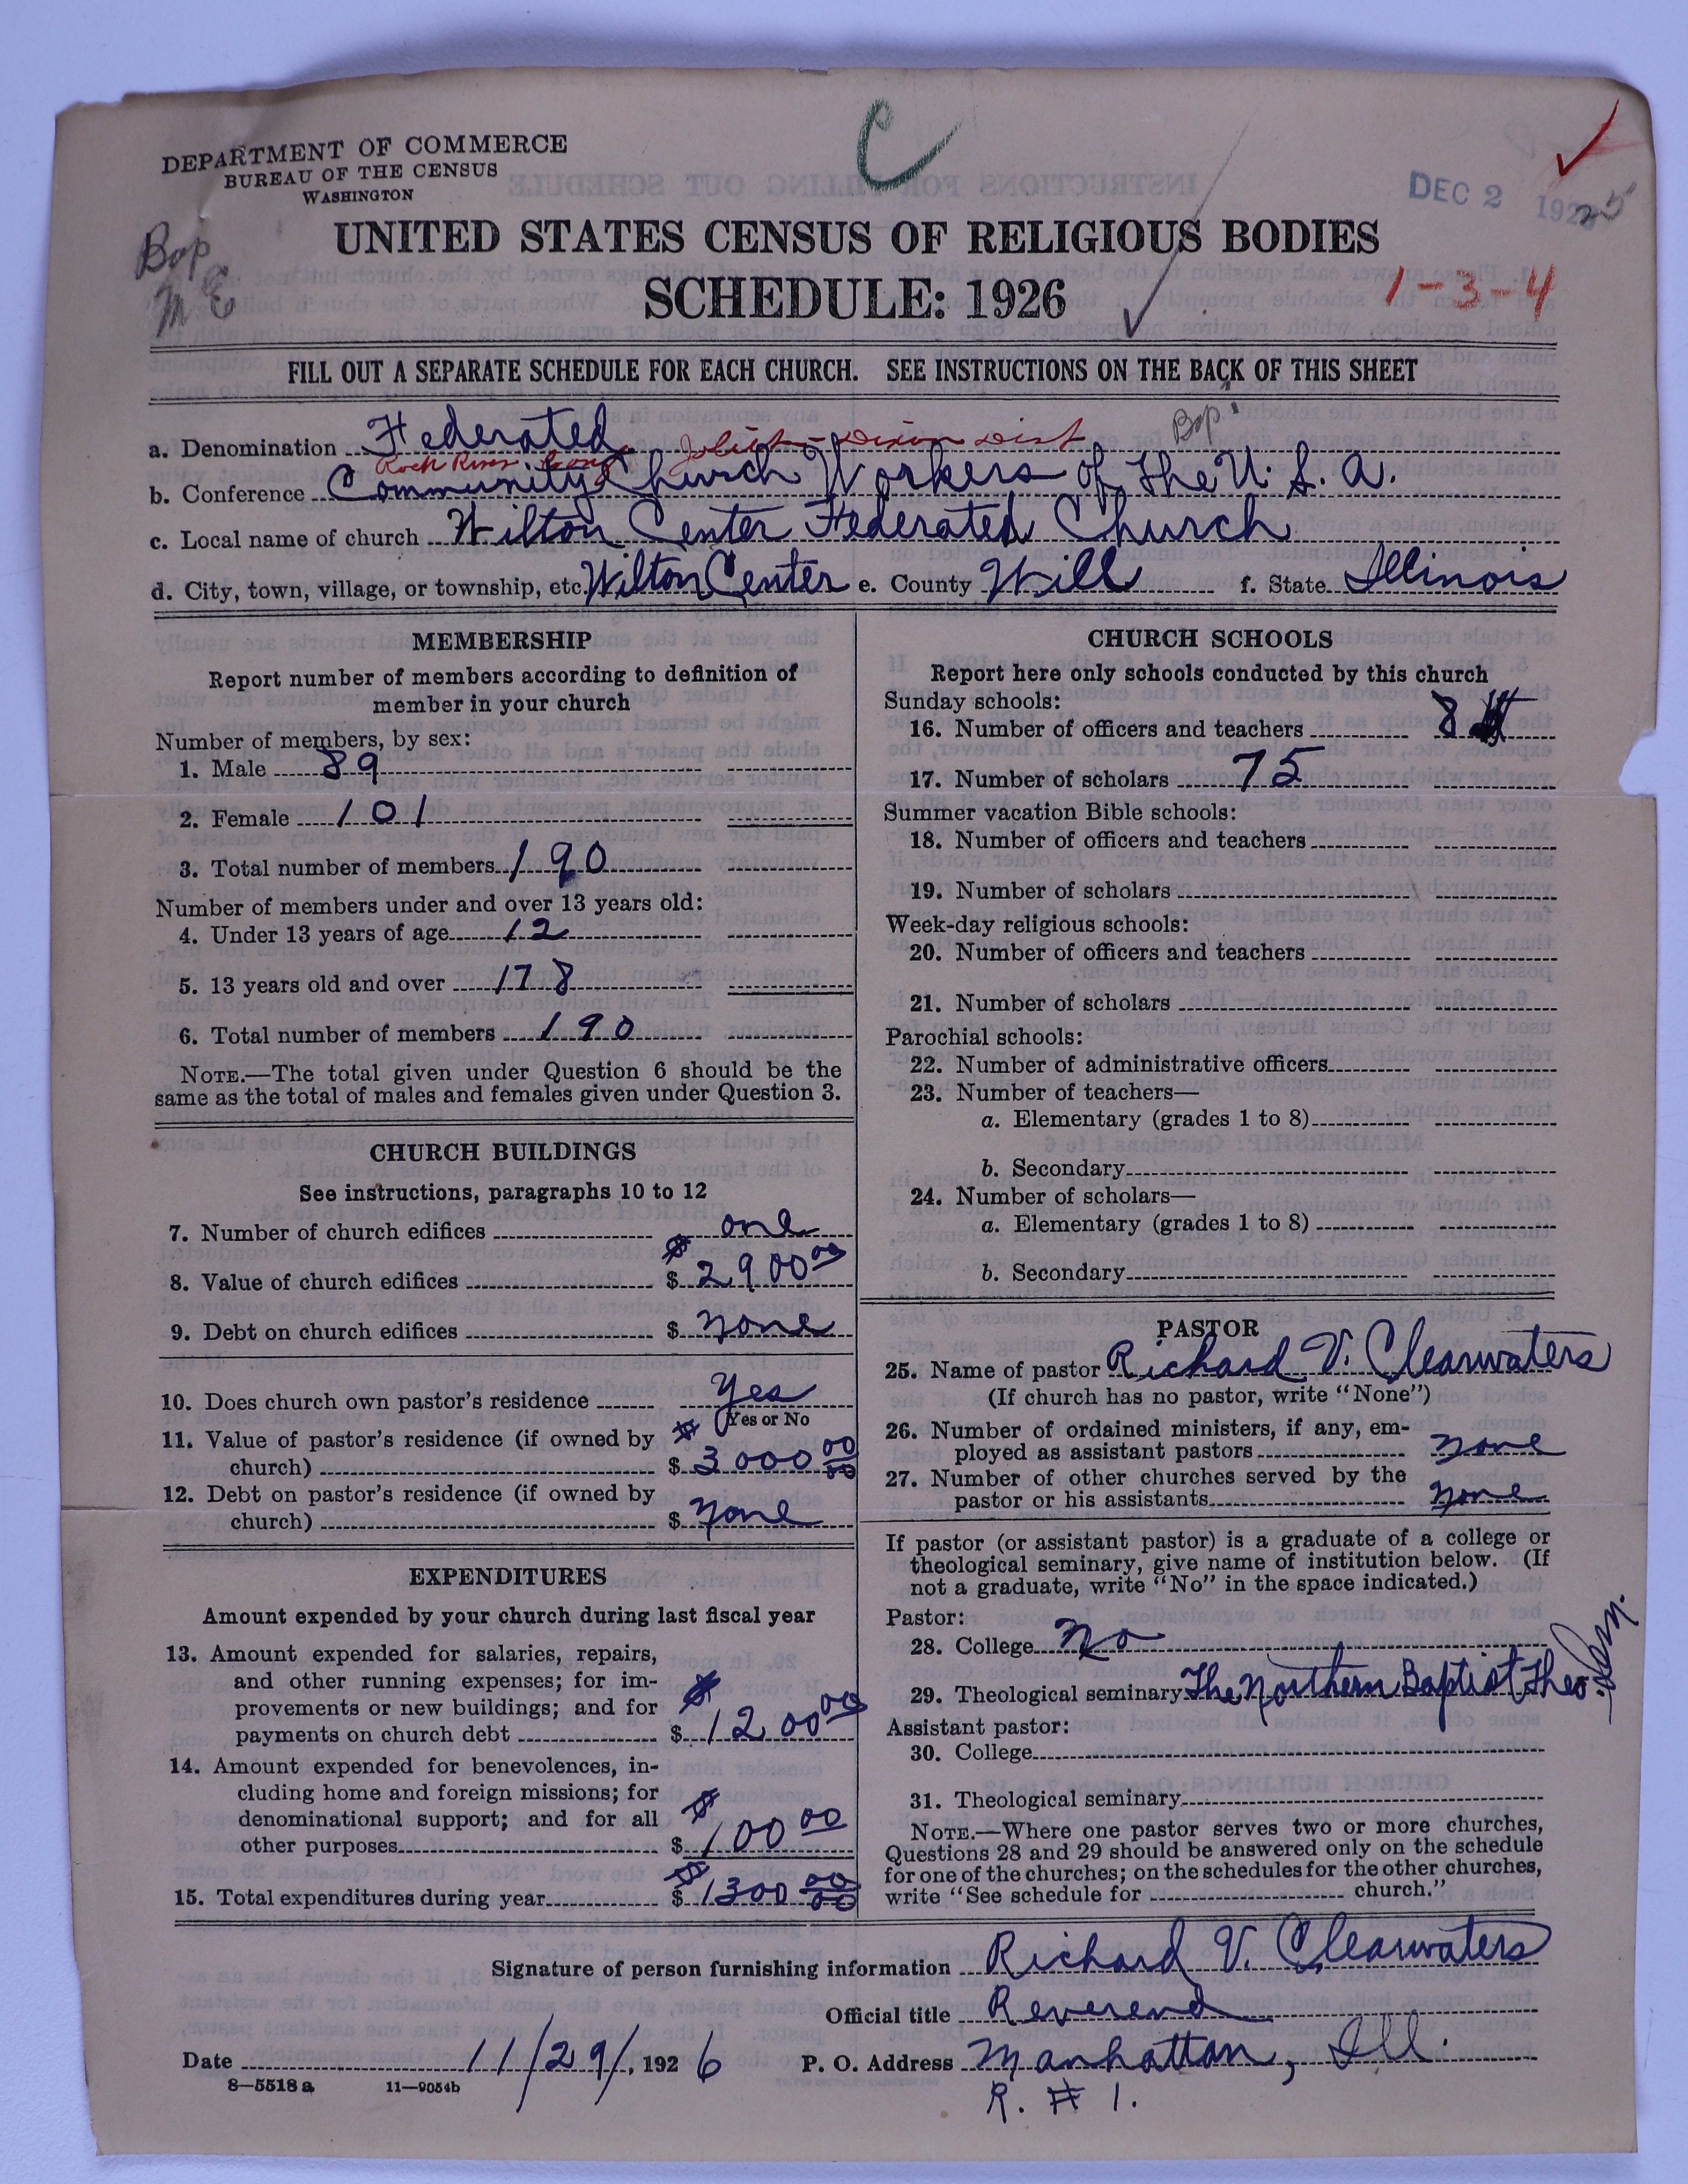 C
DEPARTMENT OF COMMERCE
BUREAU OF THE CENSUS
WASHINGTON
DEC 2 192
Bap
M E
UNITED STATES CENSUS OF RELIGIOUS BODIES
SCHEDULE: 1926
1-3-4
FILL OUT A SEPARATE SCHEDULE FOR EACH CHURCH. SEE INSTRUCTIONS ON THE BACK OF THIS SHEET
Bap.
a. Denomination Federated
Rock River Joliet-Dixon Dist
b. Conference Community Church Workers of the U.S.A.
c. Local name of church Wilton Center Federated Church
d. City, town, village, or township, etc. Wilton Center e. County Will f. State Illinois
MEMBERSHIP
Report number of members according to definition of
member in your church
Number of members, by sex:
1. Male 89
2. Female 101
3. Total number of members 190
Number of members under and over 13 years old:
4. Under 13 years of age 12
5. 13 years old and over 178
6. Total number of members 190
NOTE.—The total given under Question 6 should be the
same as the total of males and females given under Question 3.
CHURCH BUILDINGS
See instructions, paragraphs 10 to 12
7. Number of church edifices one
8. Value of church edifices $ $2900 00
9. Debt on church edifices $ none
10. Does church own pastor's residence Yes
Yes or No
11. Value of pastor's residence (if owned by
church) $ $3000 00/00
12. Debt on pastor's residence (if owned by
church) $ none
EXPENDITURES
Amount expended by your church during last fiscal year
13. Amount expended for salaries, repairs,
and other running expenses; for im-
provements or new buildings; and for
payments on church debt $ $1200 00
14. Amount expended for benevolences, in-
cluding home and foreign missions; for
denominational support; and for all
other purposes $ $100 00
15. Total expenditures during year $ $1300 00/00
CHURCH SCHOOLS
Report here only schools conducted by this church
Sunday schools:
16. Number of officers and teachers 8
17. Number of scholars 75
Summer vacation Bible schools:
18. Number of officers and teachers
19. Number of scholars
Week-day religious schools:
20. Number of officers and teachers
21. Number of scholars
Parochial schools:
22. Number of administrative officers
23. Number of teachers—
a. Elementary (grades 1 to 8)
b. Secondary
24. Number of scholars—
a. Elementary (grades 1 to 8)
b. Secondary
PASTOR
25. Name of pastor Richard V. Clearwaters
(If church has no pastor, write "None")
26. Number of ordained ministers, if any, em-
ployed as assistant pastors none
27. Number of other churches served by the
pastor or his assistants none
If pastor (or assistant pastor) is a graduate of a college or
theological seminary, give name of institution below. (If
not a graduate, write "No" in the space indicated.)
Pastor:
28. College No
29. Theological seminary The Northern Baptist Theo. Sem.
Assistant pastor:
30. College
31. Theological seminary
NOTE.—Where one pastor serves two or more churches,
Questions 28 and 29 should be answered only on the schedule
for one of the churches; on the schedules for the other churches,
write "See schedule for church."
Signature of person furnishing information Richard V. Clearwaters
Official title Reverend
Date 11/29/, 1926 P. O. Address Manhattan, Ill.
8-5518a 11-9054b
R. # 1.